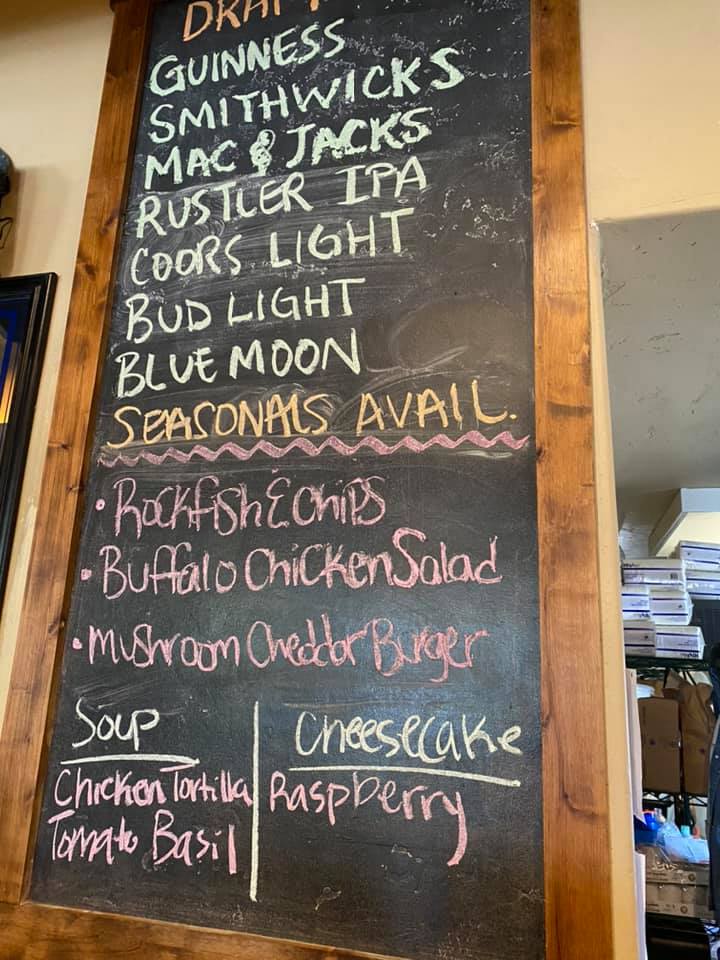 DRAFT
GUINNESS
SMITHWICKS
MAC & JACKS
RUSTLER IPA
COORS LIGHT
BUD LIGHT
BLUE MOON
SEASONALS AVAIL.
• Rockfish & Chips
• Buffalo Chicken Salad
• Mushroom Cheddar Burger
Soup
Chicken Tortilla
Tomato Basil
Cheesecake
Raspberry